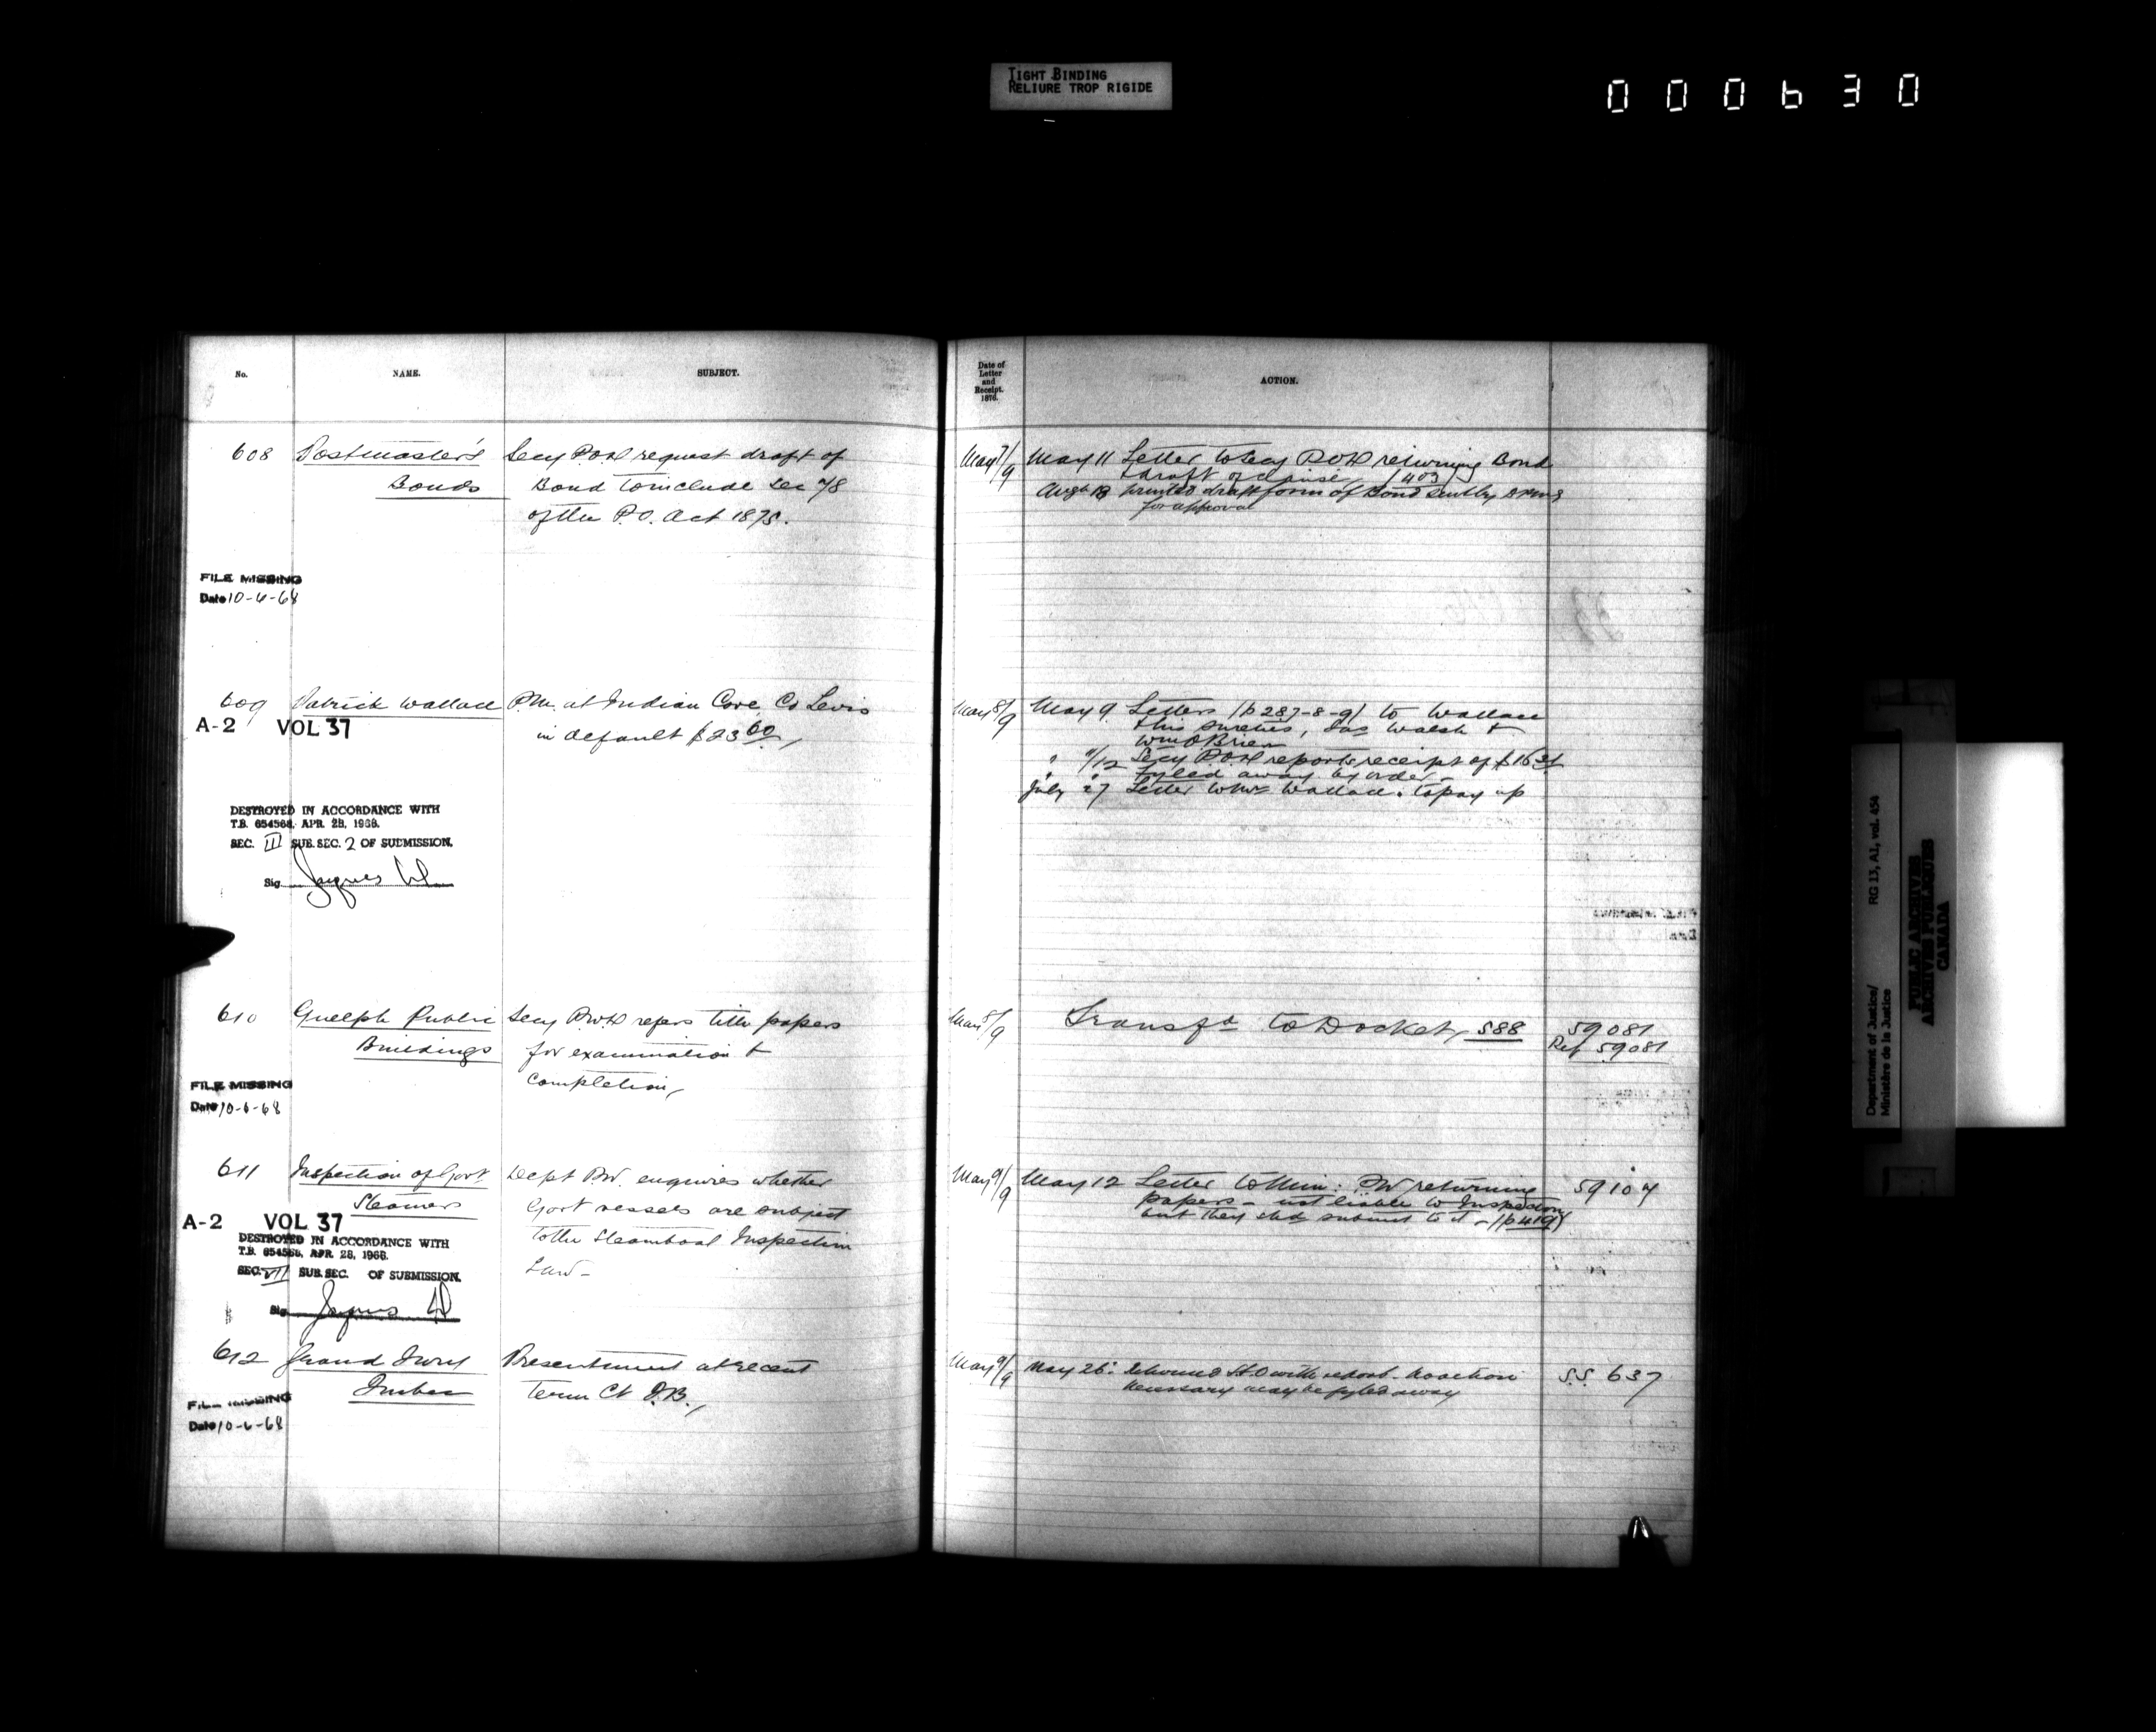 TIGHT BINDING
RELIURE TROP RIGIDE
000630
No. NAME. SUBJECT.
608 Postmaster's Secy P.O.D request draft of
Bonds Bond to include Sec 78
of the P.O. Act 1875.
FILE MISSING
Date 10-6-68
609 Patrick Wallace P.M. at Indian Cove Co Levis
A-2 VOL 37
in default $23 60
DESTROYED IN ACCORDANCE WITH
T.B. 654568, APR. 28, 1968.
SEC. III SUB. SEC. 2 OF SUBMISSION.
Sig Jacques
610 Guelph Public Secy P.W.D refers title papers
Buildings for examination &
completion,
FILE MISSING
Date 10-6-68
611 Inspection of Govt Dept P.W. enquires whether
Steamers Govt vessels are subject
A-2 VOL 37
to the Steamboat Inspection
DESTROYED IN ACCORDANCE WITH
T.B. 654568, APR. 28, 1968.
Law -
SEC. VII SUB. SEC. OF SUBMISSION.
Sig Jacques
612 Grand Jury Presentment at recent
Quebec term Ct Q.B.,
FILE MISSING
Date 10-6-68
Date of
Letter
and
Receipt.
1876.
ACTION.
May 7/9 May 11 Letter to Secy P.O.D returning Bond
& draft of clause, /403/
Augt 18 printed draft form of Bond sent by
for approval
May 8/9 May 9 Letters (p 287-8-9) to Wallace
& his sureties, Jas Walsh &
Wm O'Brien
" "/12 Secy P.O.D reports receipt of $16
Fyled away by order -
July 27 Letter to Wallace to pay up
May 8/9 Transfd to Docket, 588 59081
Ref 59081
May 9/9 May 12 Letter to Min: PW returning 59104
papers - not liable to Inspection
but they shd submit to it - (p 419)
May 9/9 May 26: Returned with report - No action S.S. 637
necessary may be fyled away
Department of Justice/ RG 13, A1, vol. 454
Ministère de la Justice
PUBLIC ARCHIVES
ARCHIVES PUBLIQUES
CANADA